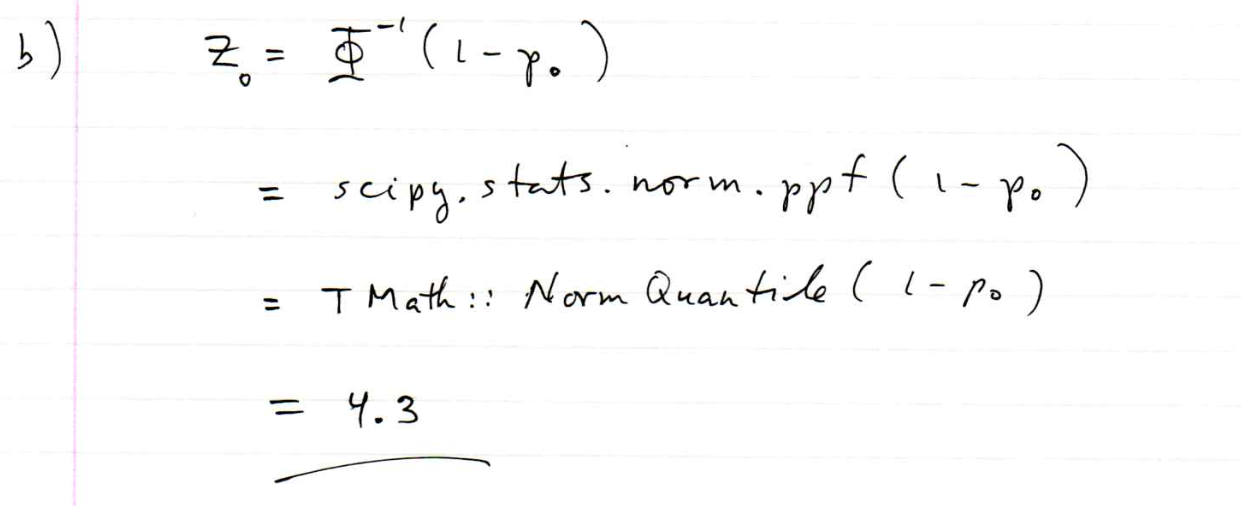 b) Z₀ = Φ⁻¹(1 - p₀)
= scipy.stats.norm.ppf(1 - p₀)
= TMath::NormQuantile(1 - p₀)
= 4.3